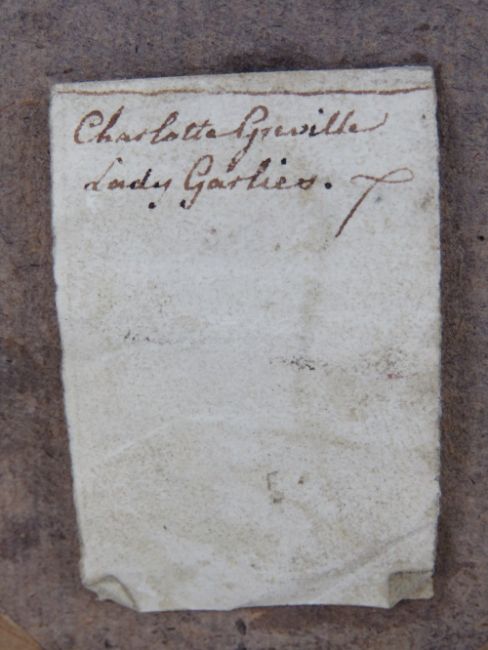 Charlotte Greville
Lady Garlies.